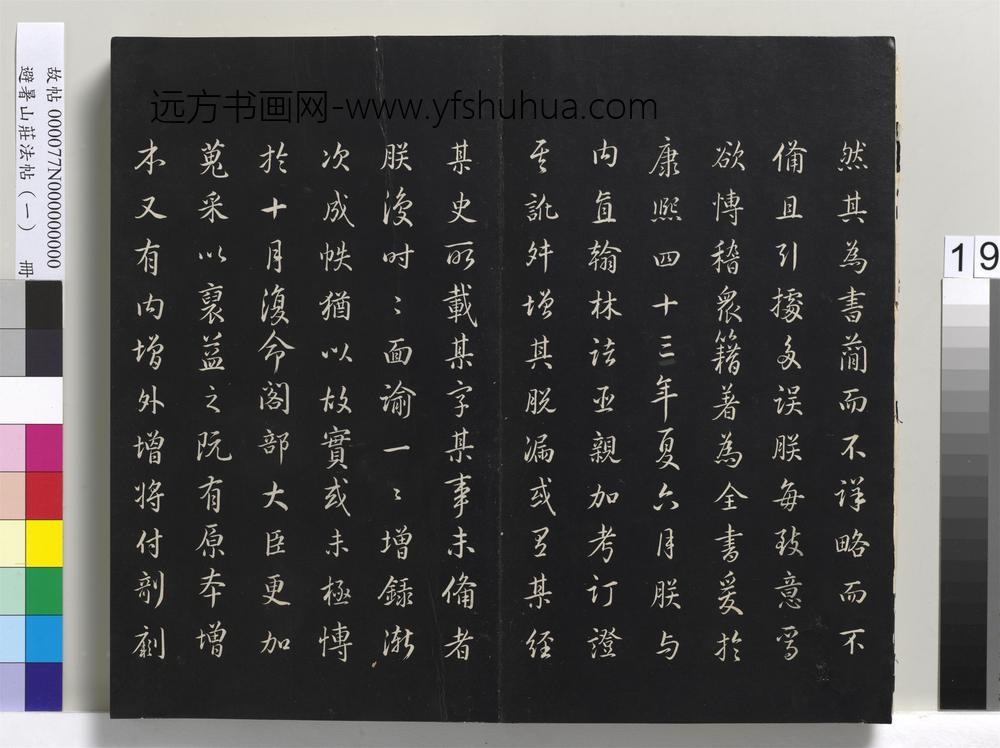 远方书画网-www.yfshuhua.com
然其為書蕳而不詳略而不
備且引據多誤朕每致意焉
欲博稽衆籍著為全書爰於
康熙四十三年夏六月朕与
内直翰林諸臣親加考訂證
其訛舛增其脱漏或有某經
某史所載某字某事未備者
朕復时〻面諭一〻增録漸
次成帙猶以故實或未極博
於十月復命閣部大臣更加
蒐采以裒益之既有原本增
本又有内增外增將付剞劂
故帖 000077N000000000
避暑山莊法帖（一） 冊
19